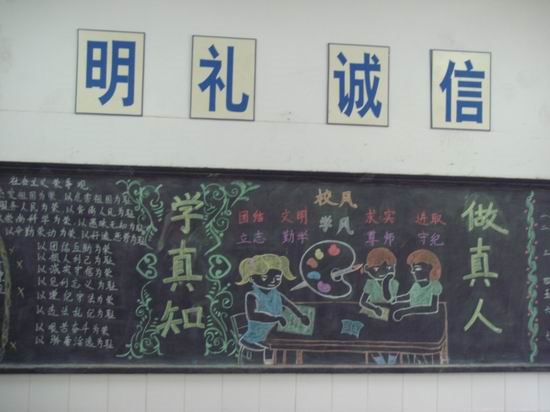 明 礼 诚 信
社会主义荣辱观
以危害祖国为耻
以背离人民为耻
以崇尚科学为荣 以愚昧无知为耻
以辛勤劳动为荣 以好逸恶劳为耻
以团结互助为荣
以损人利己为耻
以诚实守信为荣
以见利忘义为耻
以遵纪守法为荣
以违法乱纪为耻
以艰苦奋斗为荣
以骄奢淫逸为耻
学真知
校风
团结 文明 求实 进取
学风
立志 勤学 尊师 守纪
做真人